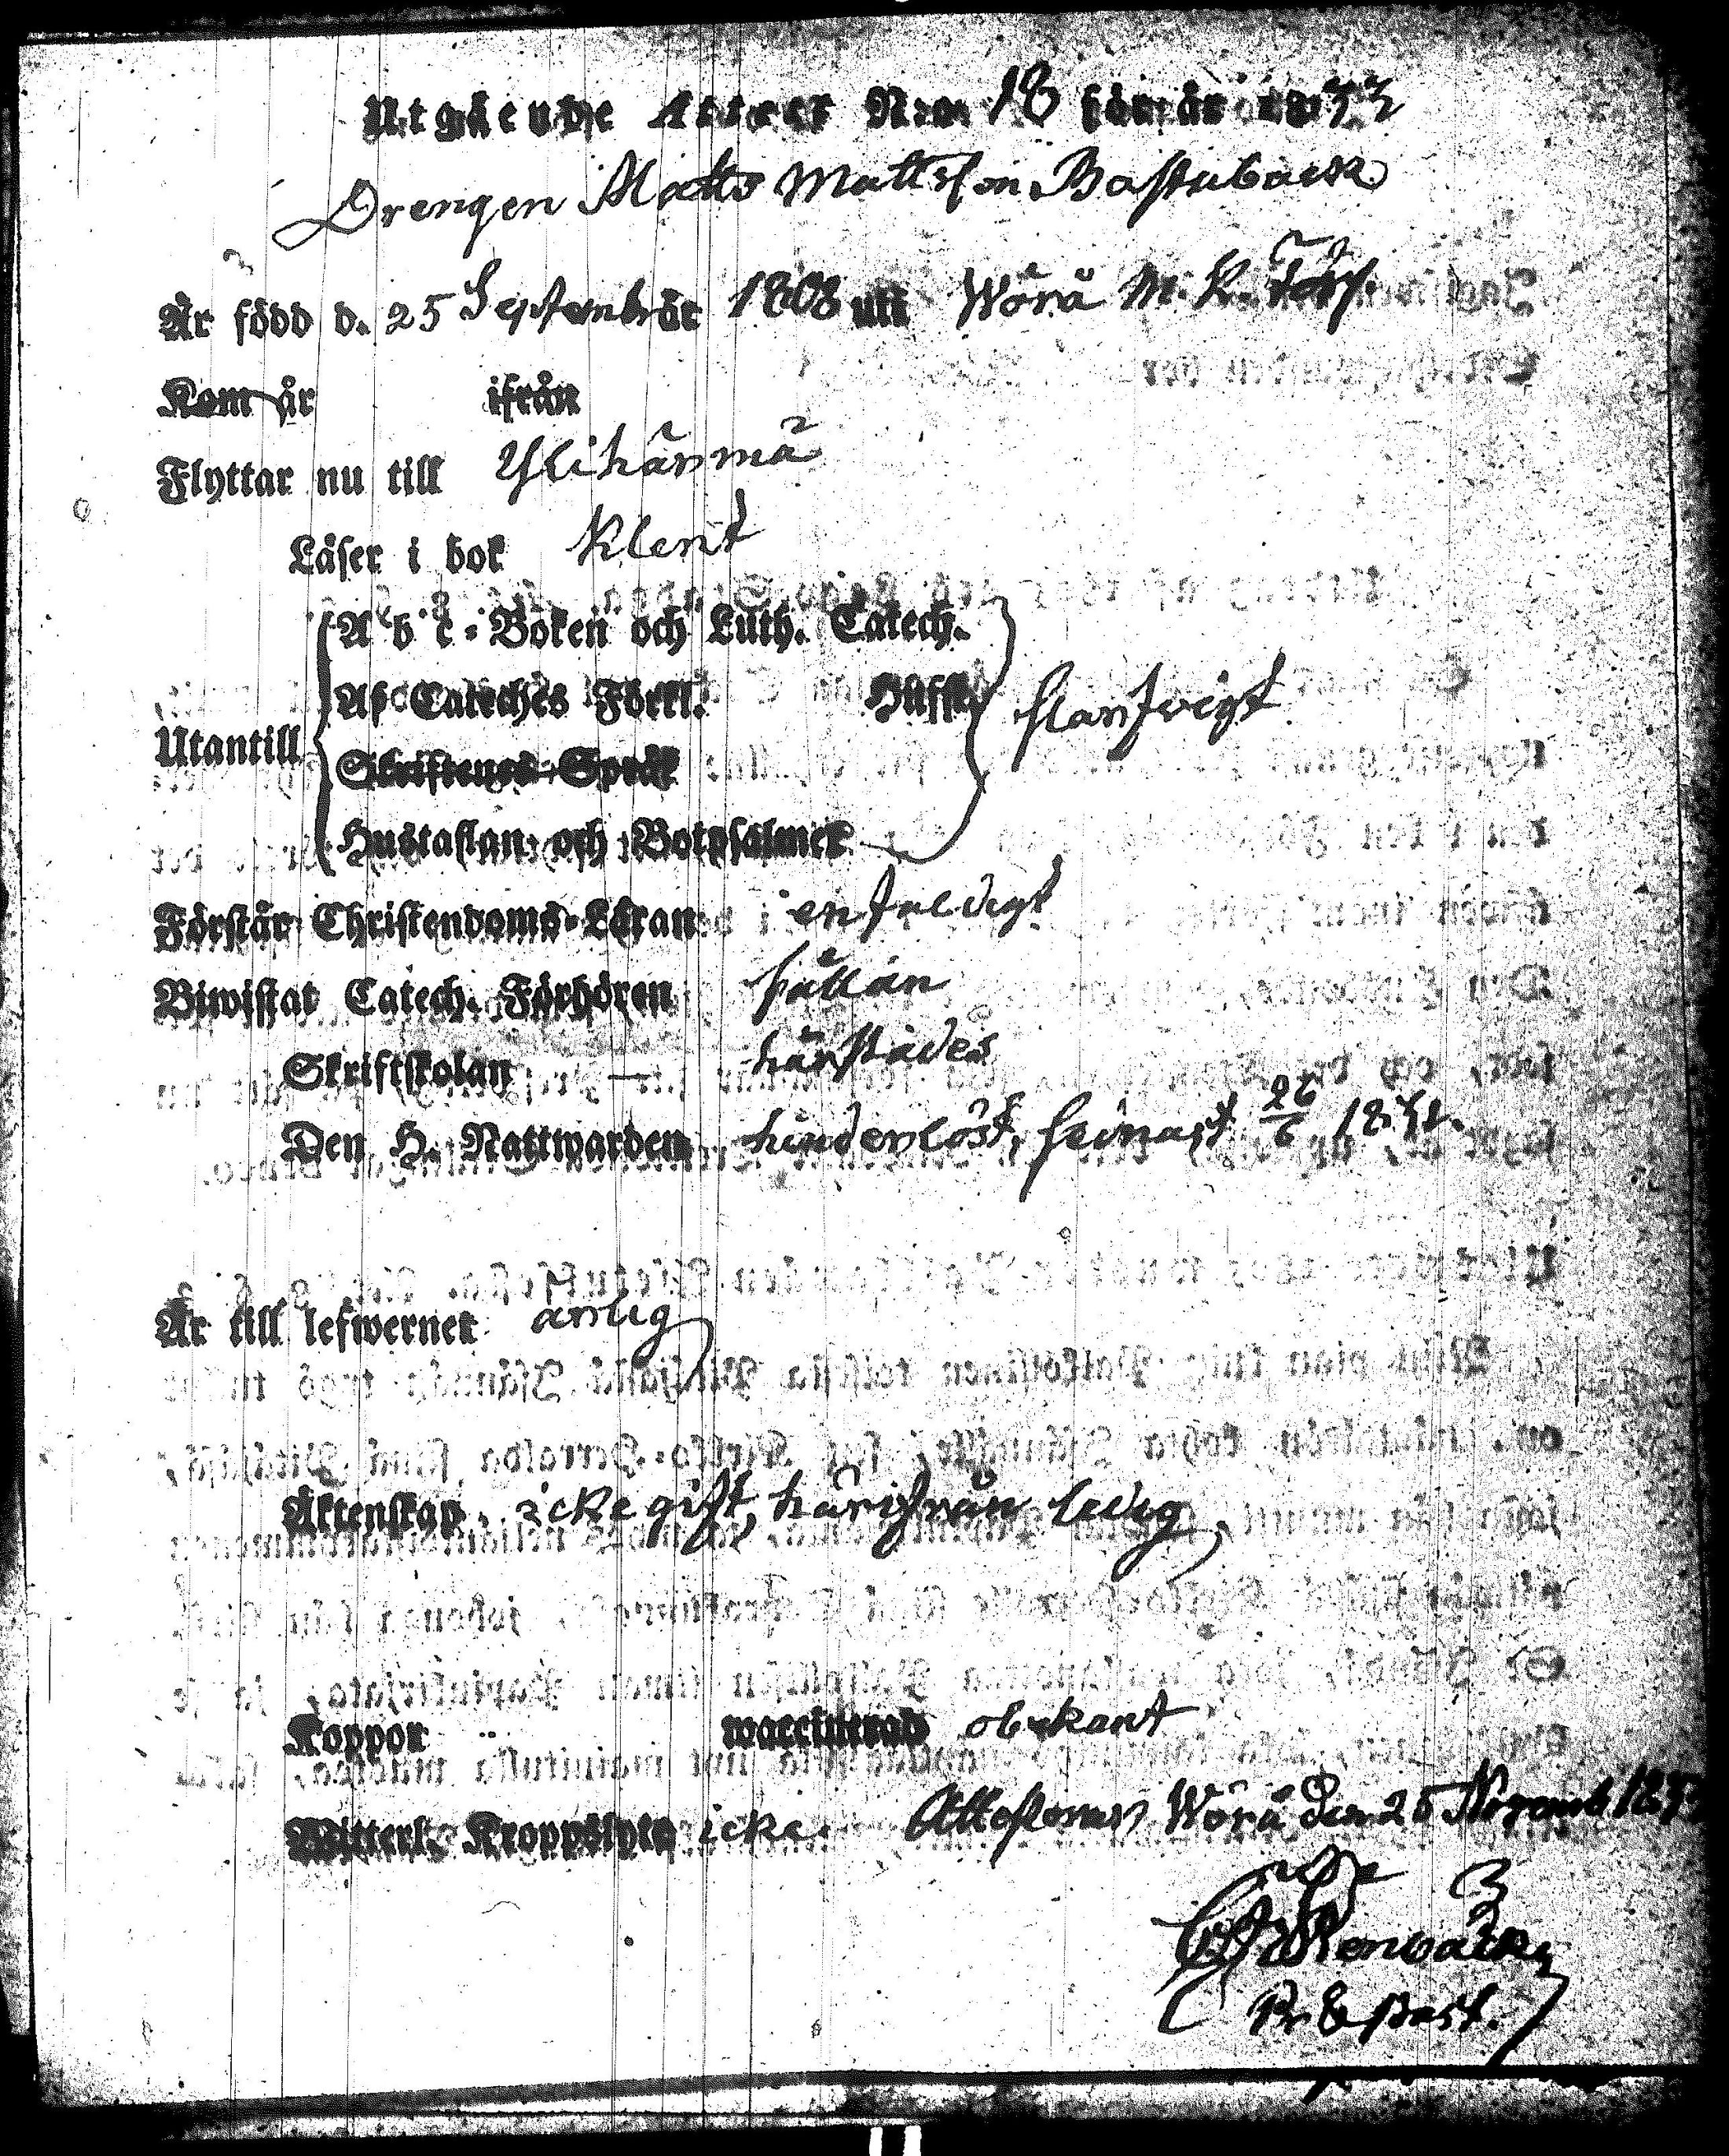 Utgående Attest N:o 18 för år 18
Drengen Matts Mattsson Bastubäck
Är född d. 25 Septemb år 1808 uti Wörå M. K. Förs.
Kom år ifrån
Flyttar nu till Ylihärmä
Läser i bok klent
A b c - Boken och Luth. Catech.
Af Cateches Förkl. Hufst.
Utantill
Skriftenes Språk
Hustaflan och Botpsalmer
Förstår Christendoms-Läran enfaldigt
Biwistat Catech. Förhören sällan
Skriftskolan — härstädes
Den H. Nattwarden hinderlöst, seinast 26/6
Är till lefwernet ärlig
Äktenskap. icke gift, härifrån ledig.
Koppor waccinerad obekant
Witterl. Kroppslyte icke. Attesterar Wörå den 25 Novemb